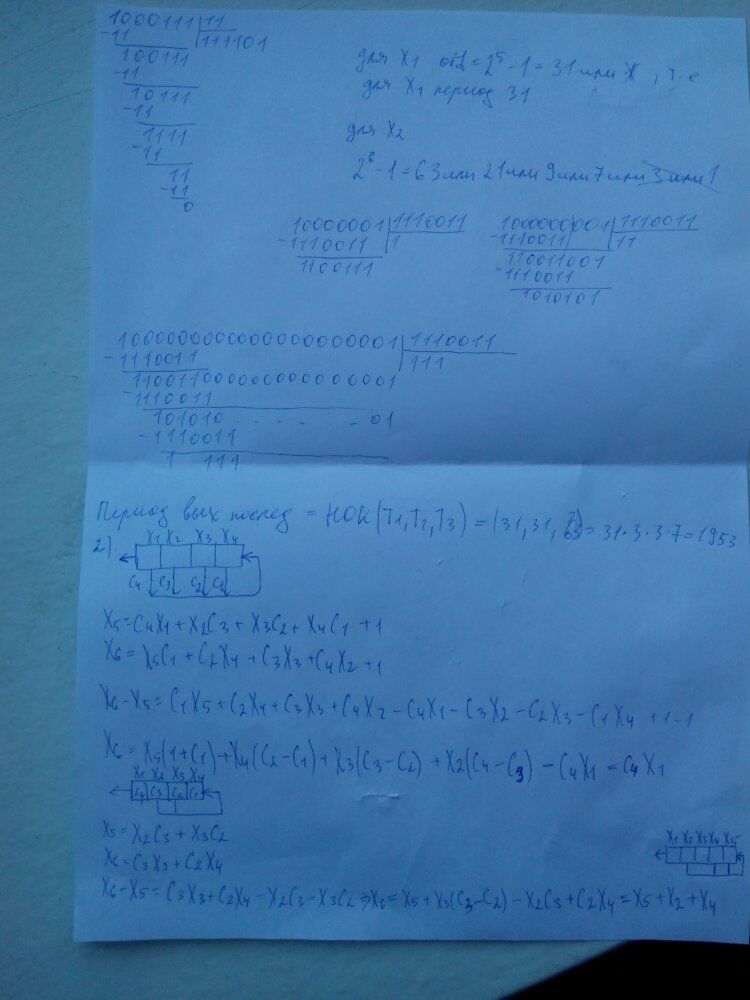 1000111 | 11
-11 | 111101
100111
-11
10111
-11
1111
-11
11
-11
0
для X1 = 2^5-1 = 31 или , т.е
для X1 период 31
для X2
2^6-1 = 63 или 21 или 9 или 7 или 3 или 1
1000001 | 1110011
-1110011 | 1
1100111
1000000001 | 1110011
-1110011 | 11
110011001
-1110011
1010101
1000000000000000000001 | 1110011
-1110011 | 111
1100110000000000000001
-1110011
101010 . - - - . - 01
-1110011
1 111
Период вых послед = НОК(T1, T2, T3) = (31, 31, 63) = 31·3·3·7 = 1953
2.)
X1 X2 X3 X4
C4 C3 C2 C1
X5 = C4X1 + X2C3 + X3C2 + X4C1 + 1
X6 = X5C1 + C2X4 + C3X3 + C4X2 + 1
X6 - X5 = C1X5 + C2X4 + C3X3 + C4X2 - C4X1 - C3X2 - C2X3 - C1X4 + 1 - 1
X6 = X5(1+C1) + X4(C2-C1) + X3(C3-C2) + X2(C4-C3) - C4X1 = C4X1
X1 X2 X3 X4
C4 C3 C2 C1
X5 = X2C3 + X3C2
X6 = C3X3 + C2X4
X1 X2 X3 X4 X5
X6 - X5 = C3X3 + C2X4 - X2C3 - X3C2 ⇒ X6 = X5 + X3(C3-C2) - X2C3 + C2X4 = X5 + X2 + X4